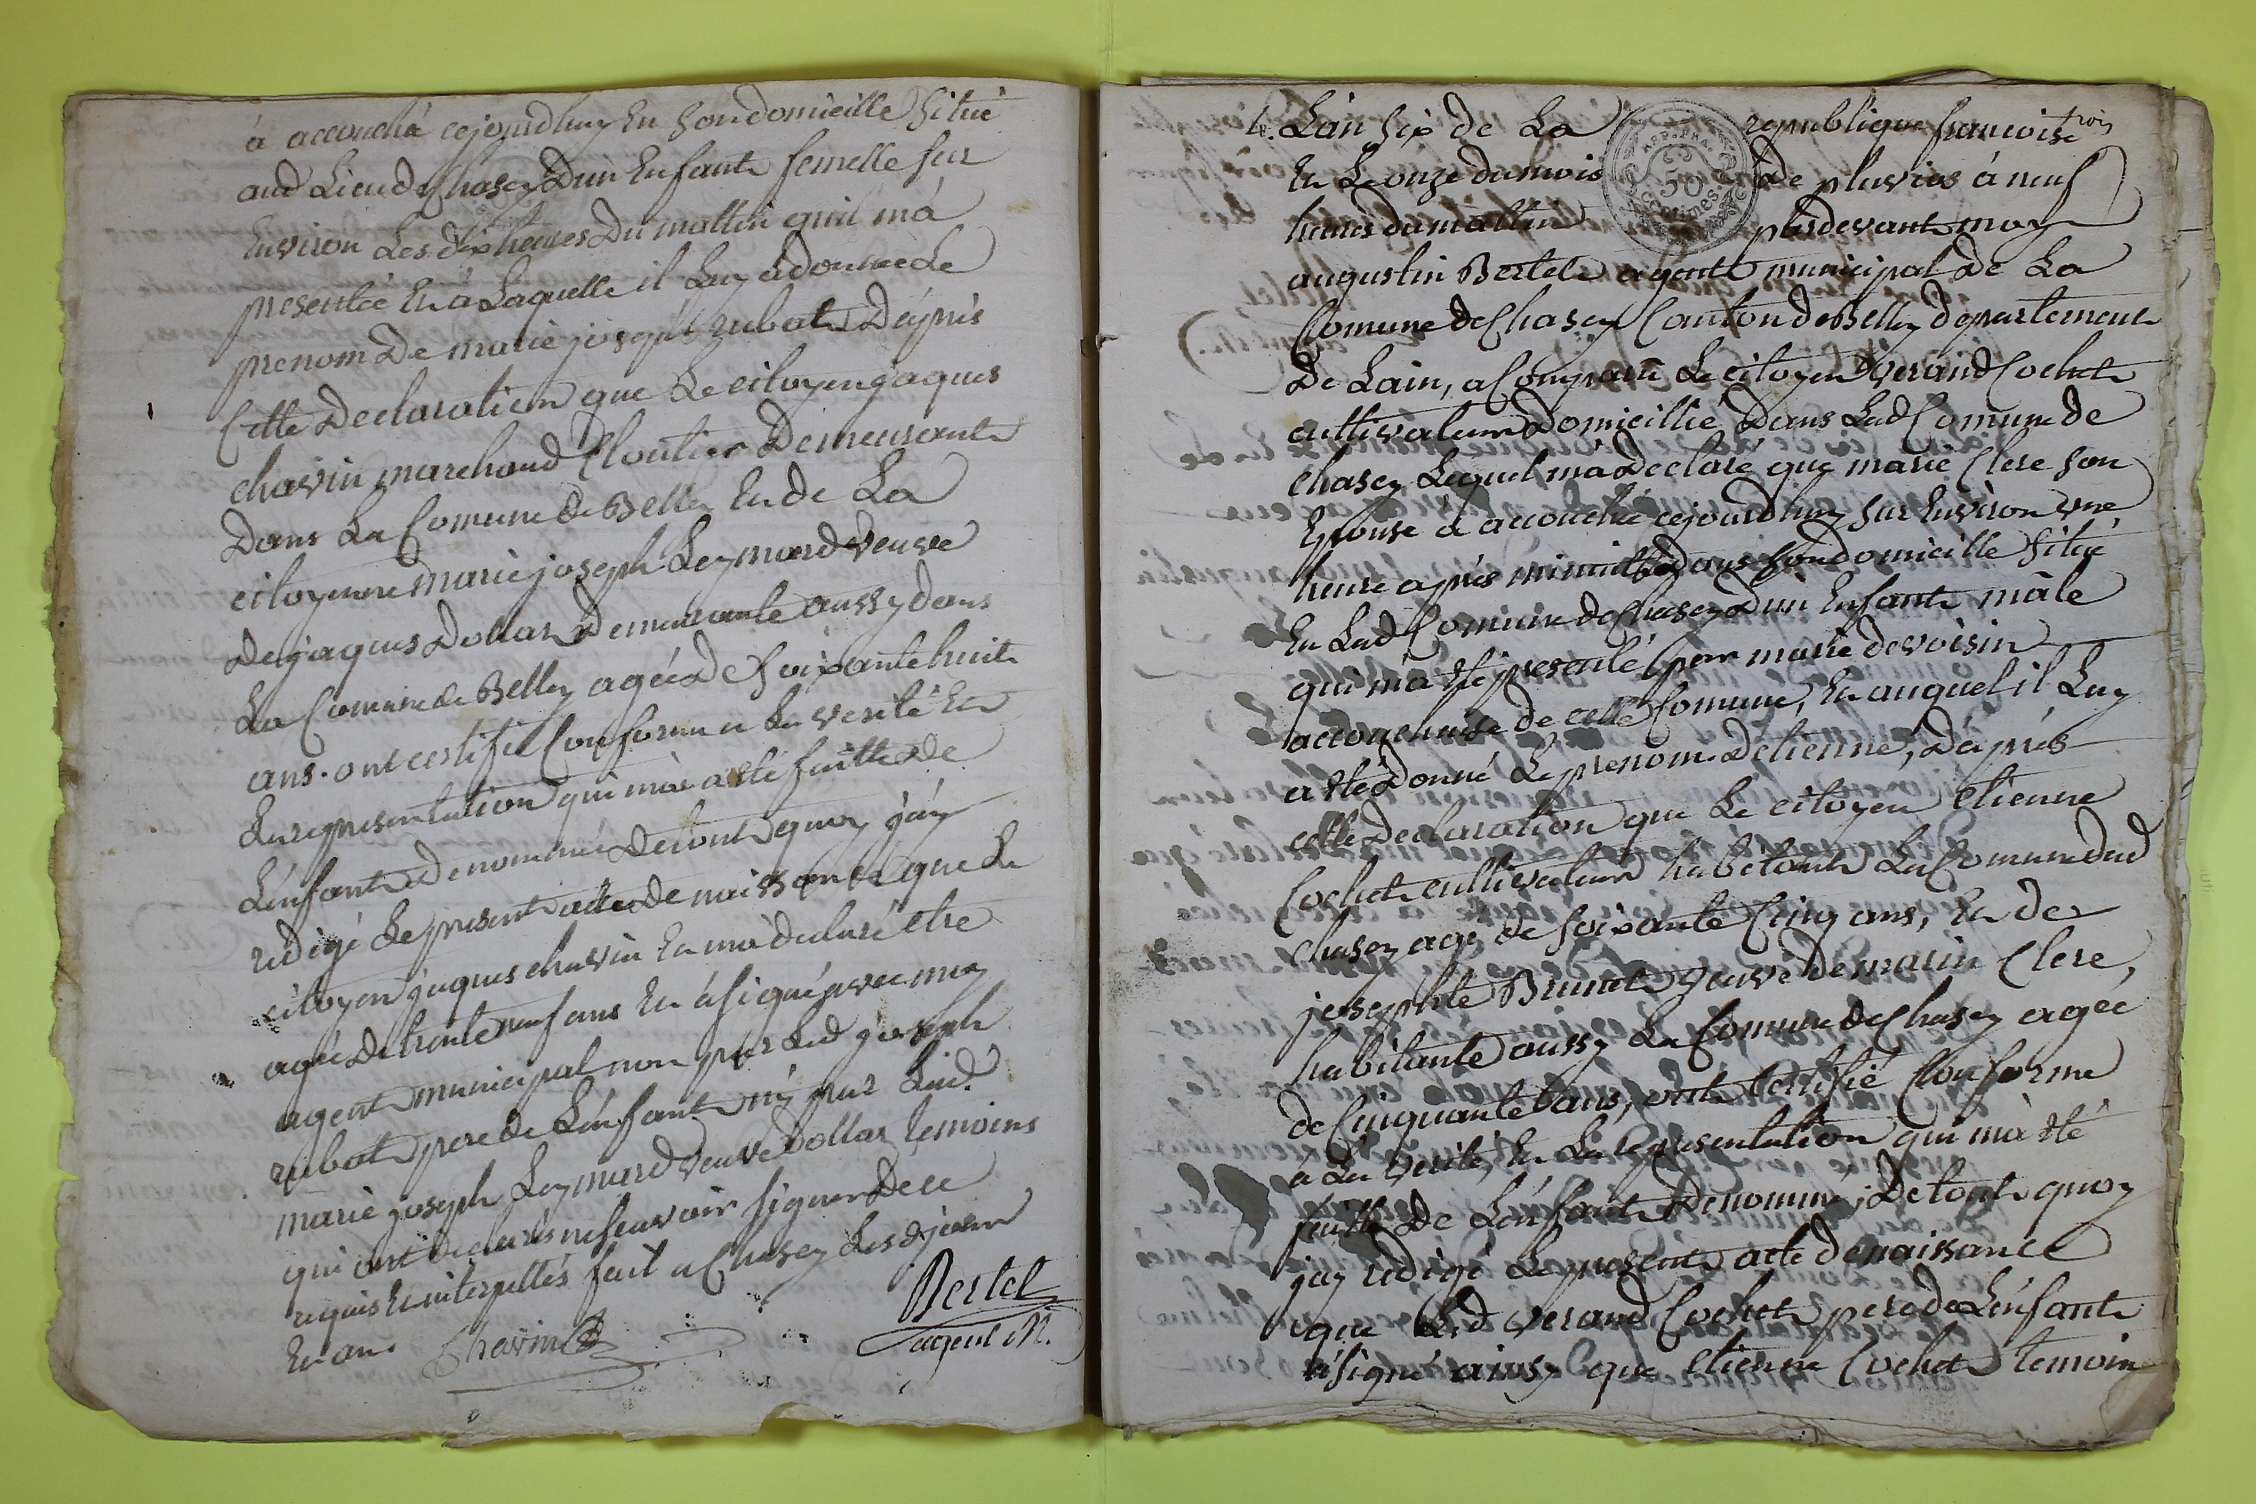 à accouchà cejourdhuy En Son domicille Situé
aud Lieu de Chasey Dun Enfant femelle sur
Environ Les dix heures Du mattin quil má
presentée Et á Laquelle il Luy à donné Le
prenom De marie joseph rubat Dàprés
Cette Declaration que Le citoyen jaques
chavin marchand Cloutier Demeurant
Dans La Comune de Belley Et de La
citoyenne marie joseph Leymard veuve
De jaques Dollar Demeurante aussy dans
La Comune de Belley agée de Soixante huit
ans. ont certifié Conforme a La verité Et
La representation qui má a eté faitte de
Lénfant denommé De tout quoy jáy
redigé Le present acte De naissance que Le
citoyen jaques chavin Et má declaré etre
agée De trente neuf ans Et á signé avec moy
agent municipal non par Led joseph
rubat pere de Lénfant ny par Lad.
marie joseph Leymard veuve Dollar temoins
qui ont declarés ne sçavoir signer De ce
requis Et interpellés fait a Chasey Lesd jour
Et an. Chavin
Bertet
agent M.
4. Lán Six de La republique francoise
trois
APP.PHA.
50
Centimes.
Et Le onze du mois De pluvios á neuf
heures du mattin pardevant moy
augustin Bertet agent municipal De La
Comune de Chasey Canton de Belley departement
De Lain, a Comparu Le citoyen verand Cochet
cultivateur Domicillié Dans Lad Comune de
chasey Lequel má Declaré que marie Clere Son
Epouse à accouché cejourdhuy sur Environ une
heure aprés minuit dans Son domicille Situé
En Lad Comune de Chasey Dun Enfant mâle
qui má eté presenté par marie devoisin
accoucheuse de cette Comune, Et auquel il Luy
a eté Donné Le prenom détienne, Dáprés
cette Declaration que Le citoyen etienne
Cochet cultivateur habitant La Comune dud
chasey agé de Soixante Cinq ans, Et de
josephte Brunet veuve de marin Clere,
habitante aussy La Comune de Chasey agée
de Cinquante ans, ont Certifié Conforme
a La verité Et La representation qui má eté
faitte De Lénfant Denommé, De tout quoy
jay redigé Le present acte de naissance
que Led verand Cochet pere de Lénfant
á signé ainsy que etienne Cochet temoin